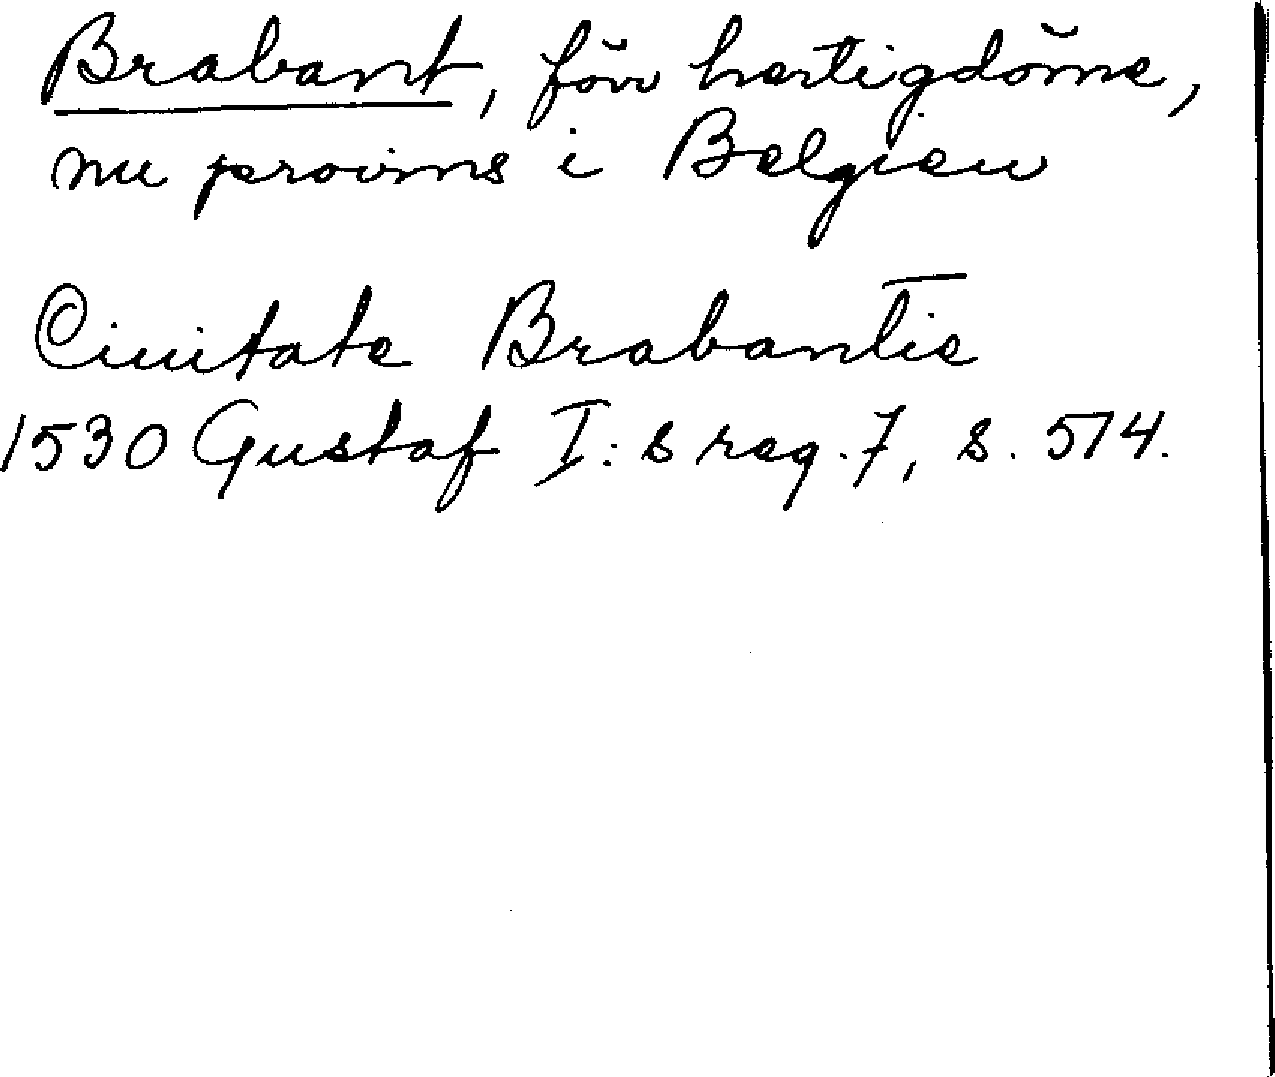 Brabant, förr hertigdöme,
nu provins i Belgien
Ciuitate Brabantie
1530 Gustaf I:s reg. 7, s. 574.